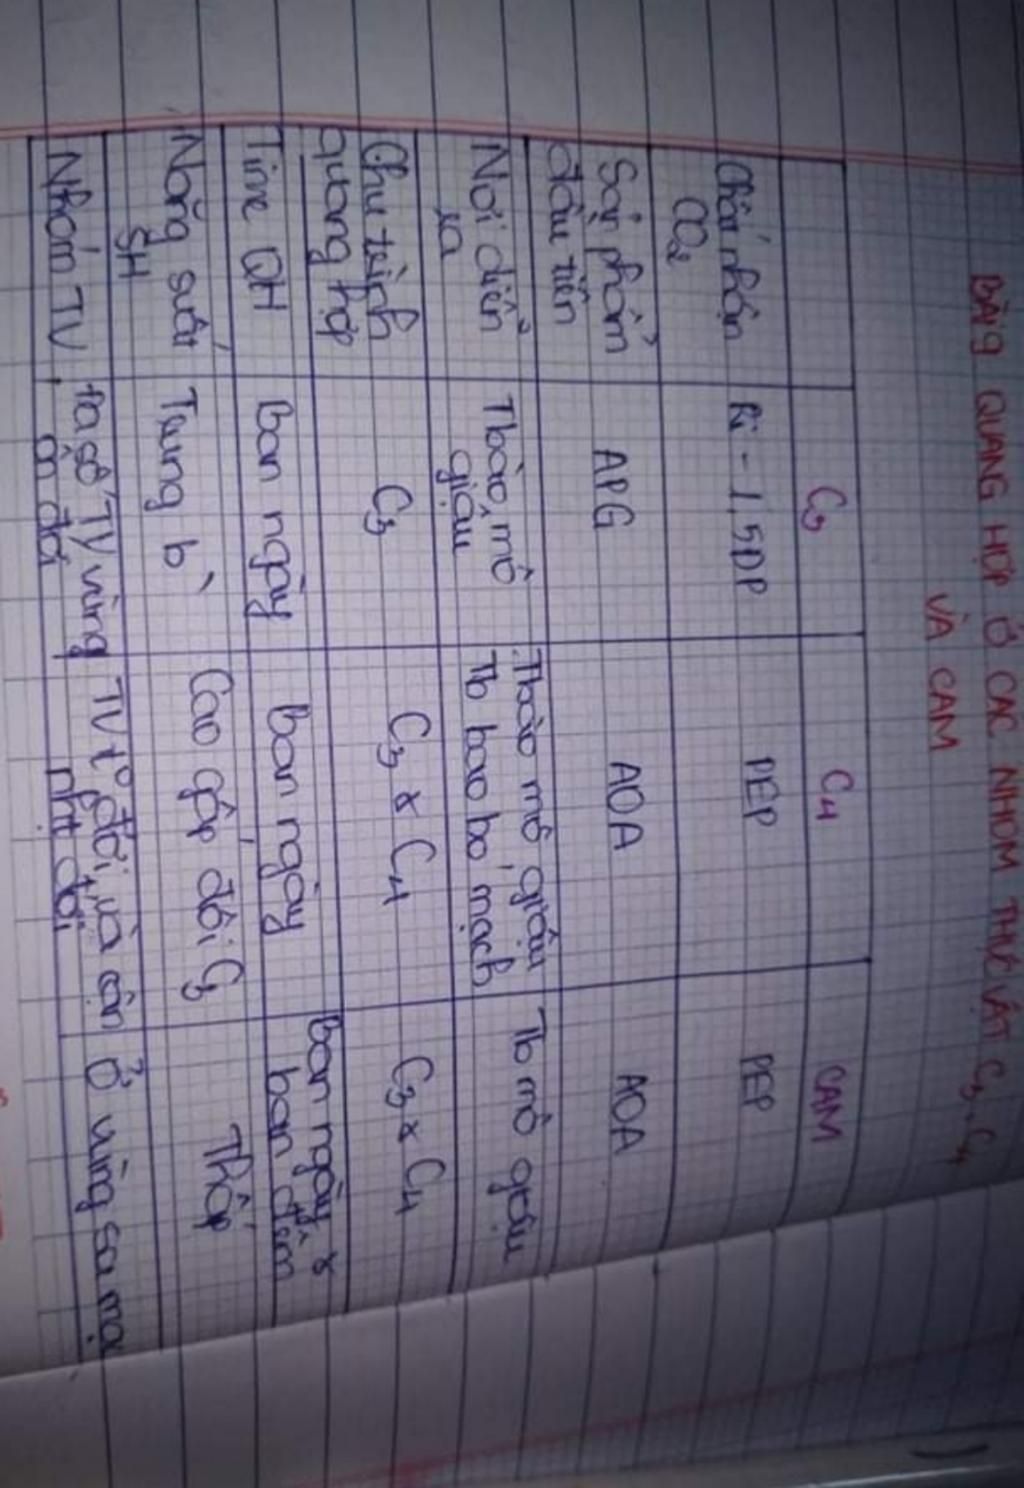 BÀI 9 QUANG HỢP Ở CÁC NHÓM THỰC VẬT C3, C4
VÀ CAM
C3 C4 CAM
Chất nhận Ri-1,5DP PEP PEP
CO2
Sản phẩm APG AOA AOA
đầu tiên
Nơi diễn Tbào mô Tbào mô giậu Tb mô giậu
ra giậu Tb bao bó mạch
Chu trình C3 C3 & C4 C3 & C4
quang hợp
Time QH Ban ngày Ban ngày Ban ngày &
ban đêm
Năng suất Trung b̀ Cao gấp đôi C3 Thấp
SH
Nhóm TV Đa số TV vùng TV tº đới và cận Ở vùng sa mạc
ôn đới nhịt đới